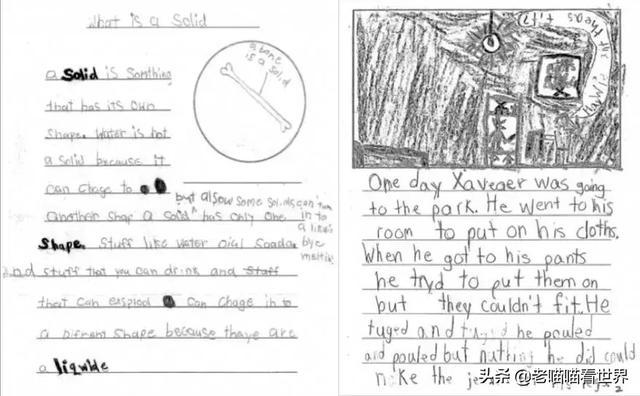 What is a Solid
a bone
is a solid
a Solid is Somthing
that has its own
shape. Water is not
a solid because it
can chage to a
but alsow some solids can turn
in to
a likwid
bye
melting
another shap a Solid has only one
Shape. Stuff like water oial Soada
and stuff that you can drink and Staff
that can exsplod can chage in to
a Difrent Shape because thaye are
a liqwide
pants
fit?
One day Xaveaer was going
to the park. He went to his
room to put on his cloths.
When he got to his pants
he tryd to put them on
but they couldn't fit. He
tuged and tuged he pouled
and pouled but nuthing he did could
make the
头条 @老喵喵看世界